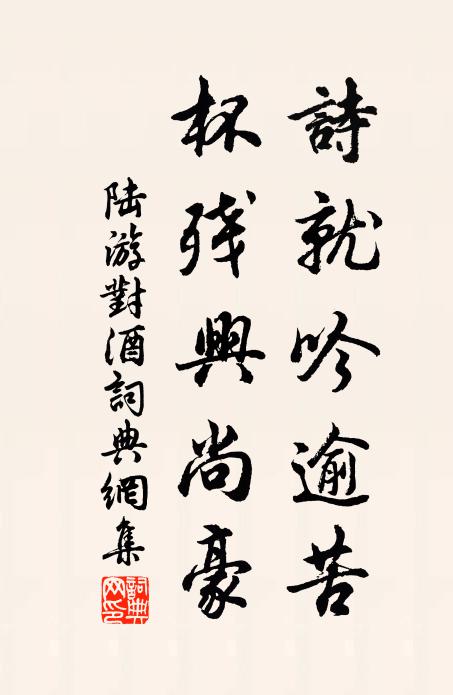 詩就吟逾苦
杯殘興尚豪
陸游對酒詞典網集
詞典网印